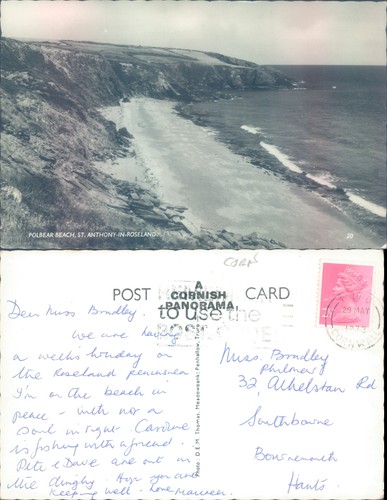 POLBEAR BEACH, ST. ANTHONY-IN-ROSELAND.
20
POST
A
CORNISH
PANORAMA
CARD
to use the
Dear Miss Bradley.
We are having
a weeks holiday on
the Roseland peninsula
I'm on the beach in
peace - with not a
soul in sight. Caroline
is fishing with a friend.
Pete & Dave are out in
the dinghy. Hope you are
keeping well. Love Maureen.
Miss. Bradley
32, Athelstan Rd
Southbourne
Bournemouth
Hants.
Photo: D.E.M. Thomas, Meadowbank, Panhallow,
29 MAY